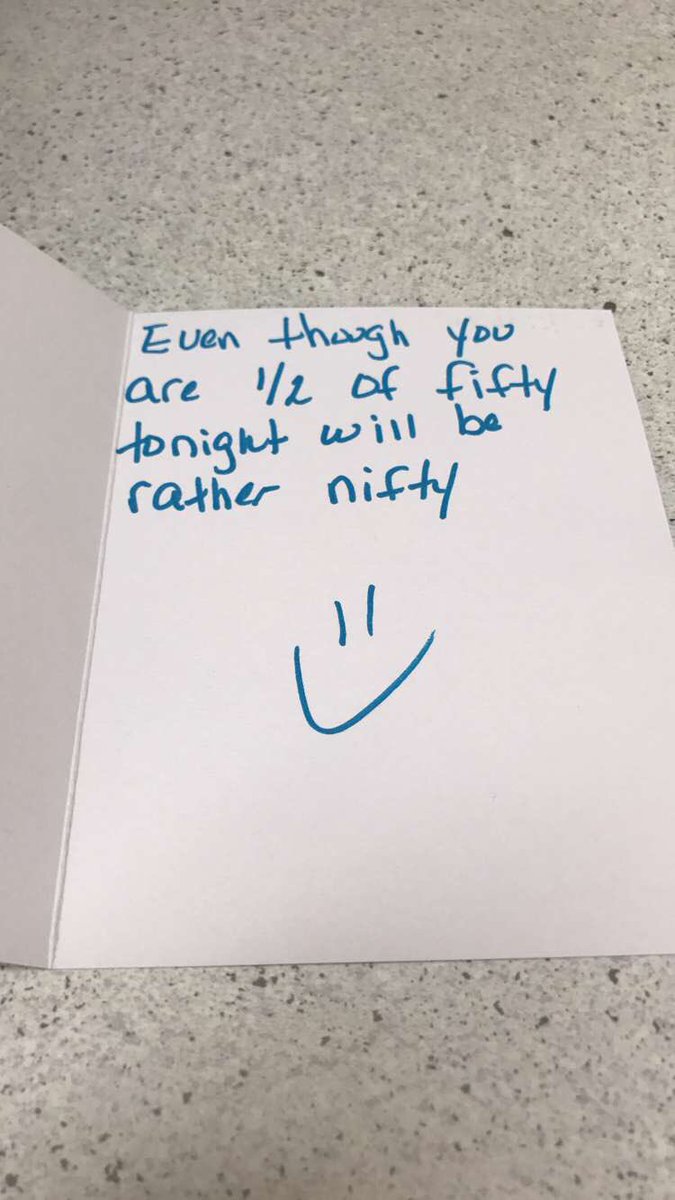 Even though you
are 1/2 of fifty
tonight will be
rather nifty